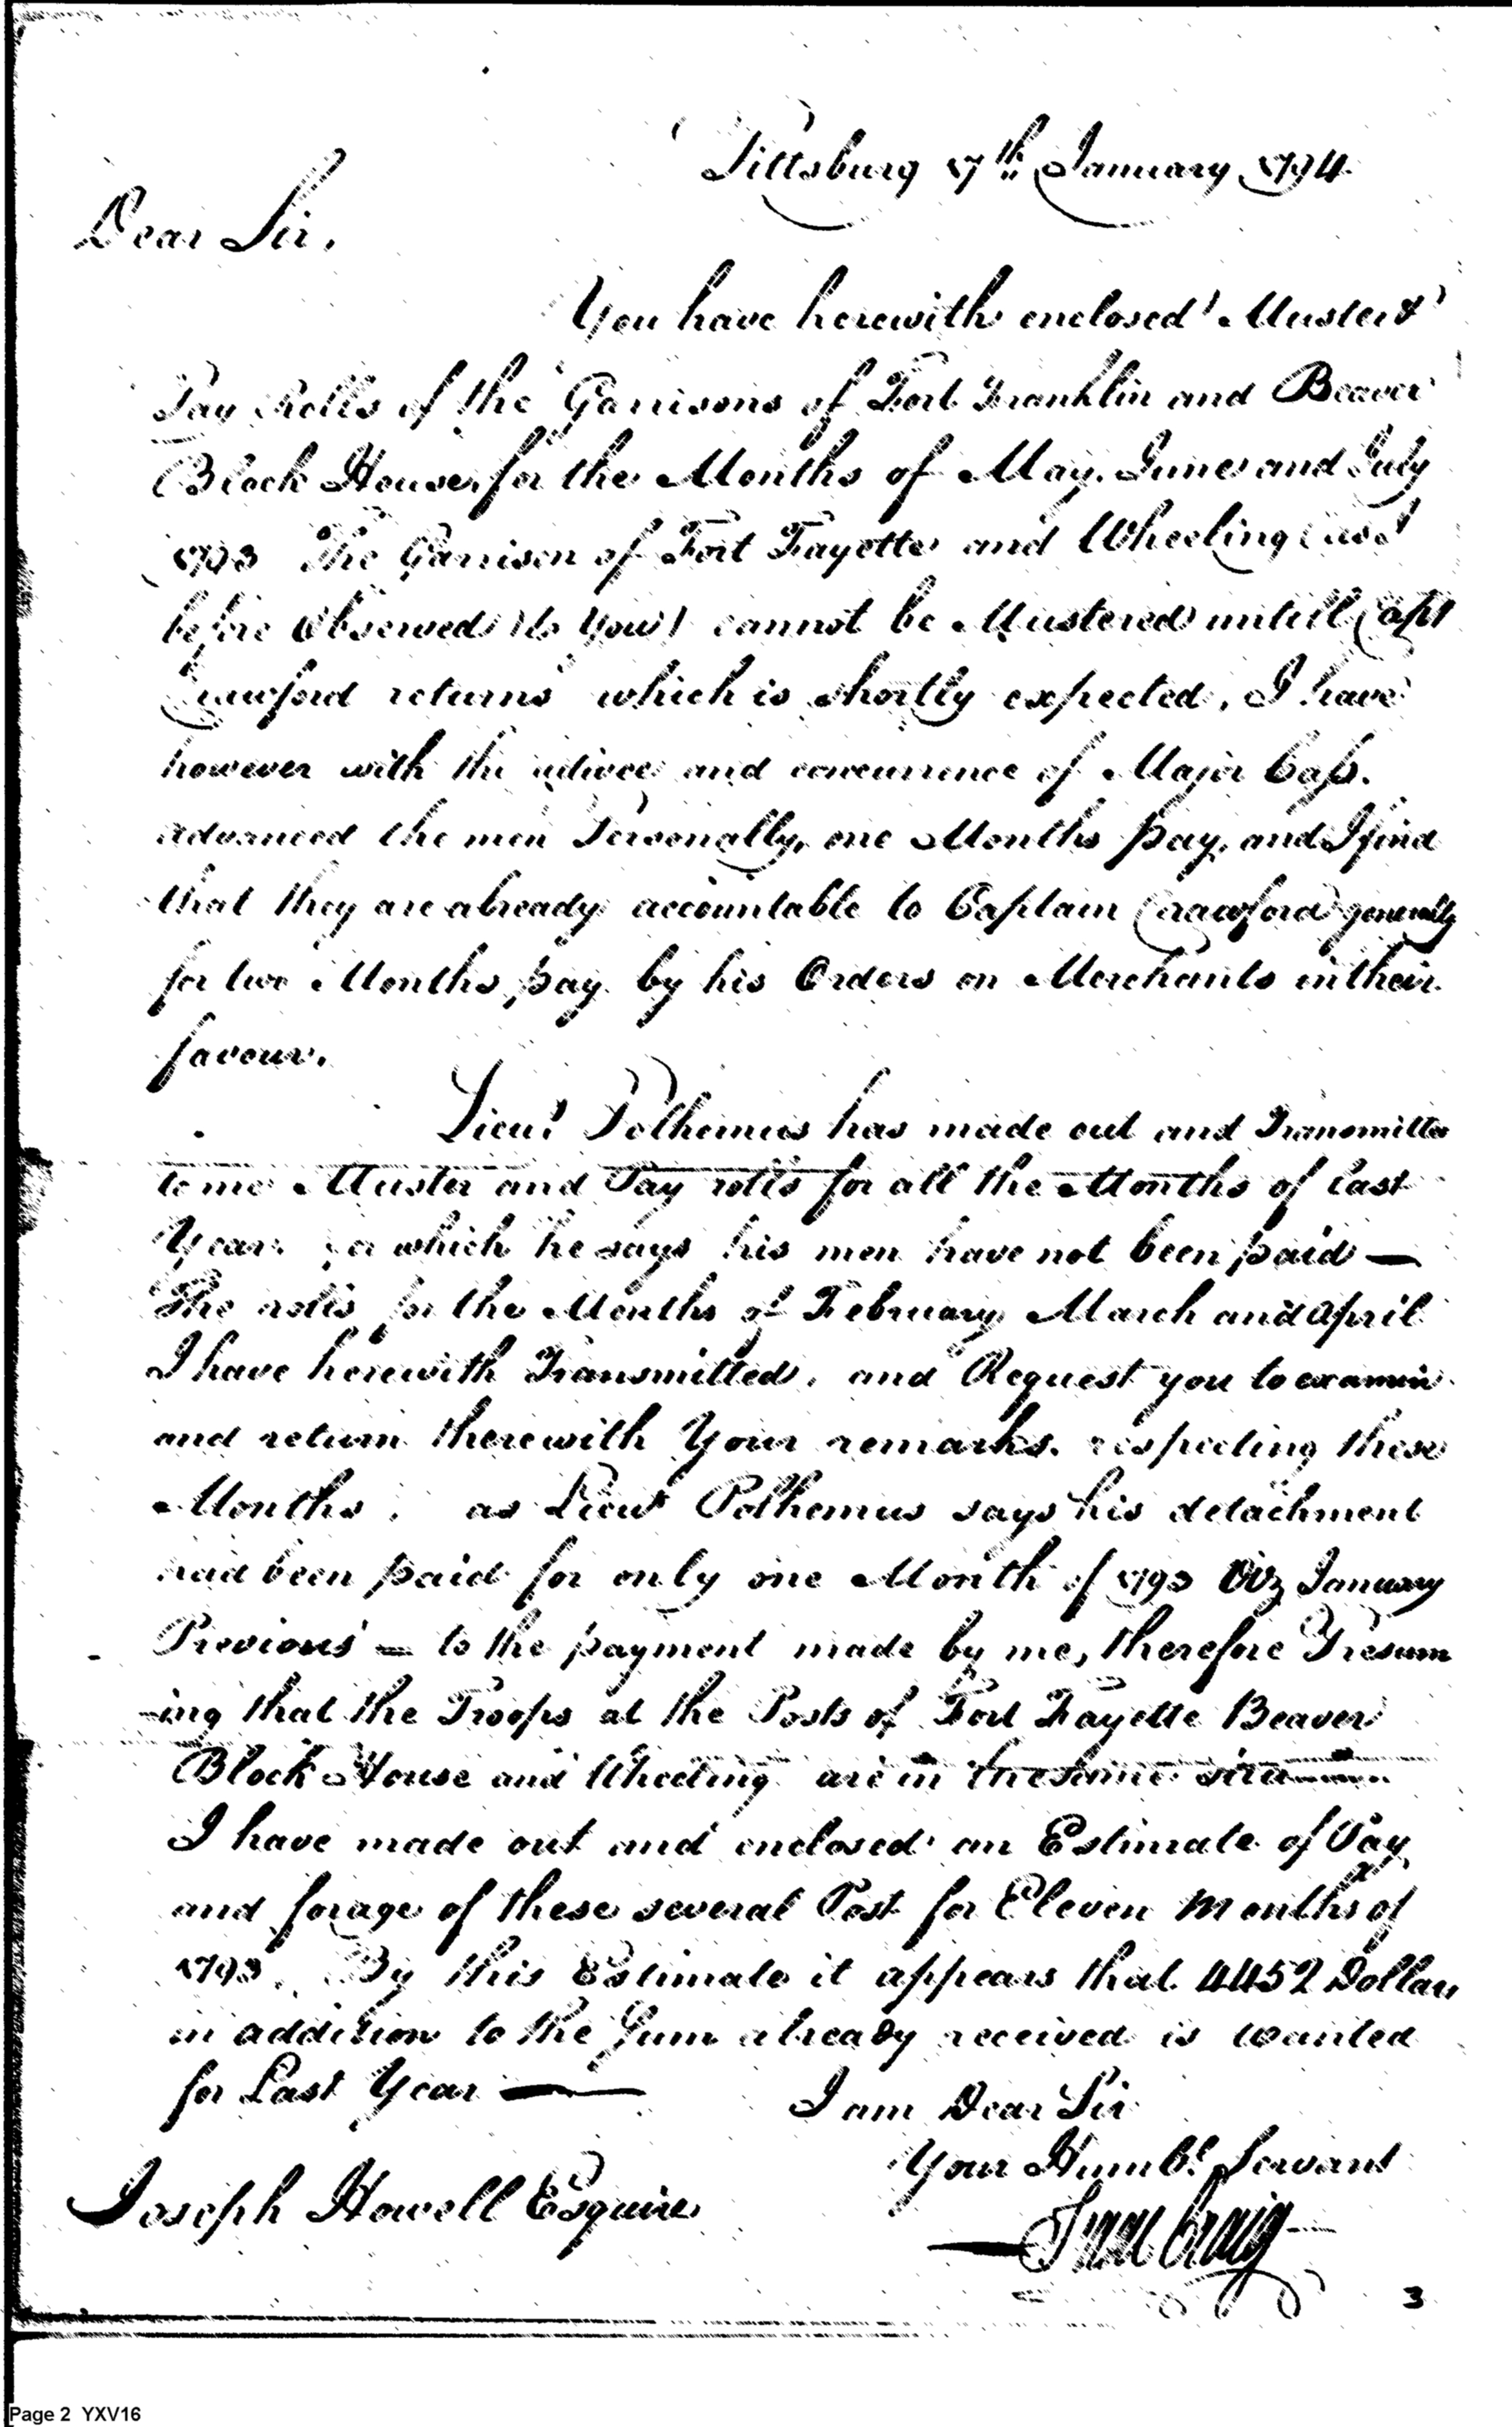 Pittsburg 17th January 1794
Dear Sir,
You have herewith enclosed Muster &
Pay Rolls of the Garrisons of Fort Franklin and Beaver
Block House, for the Months of May, June and July
1793 The Garrison of Fort Fayette and Wheeling (as
before Observed to You) cannot be Mustered untill Capt
Crawford returns which is shortly expected, I have
however with the advice and concurrence of Major Cass.
advanced the men Personally, one Months pay, and I find
that they are already accountable to Captain Crawford generally
for two Months pay by his Orders on Merchants in their
favour.
Lieut Polhemus has made out and Transmitted
to me Muster and Pay rolls for all the Months of last
Year for which he says his men have not been paid —
The rolls for the Months of February March and April
I have herewith Transmitted, and Request you to examin
and return therewith Your remarks, respecting these
Months, as Lieut Polhemus says his detachment
had been paid for only one Month of 1793 Viz January
Previous — to the payment made by me, therefore Presum
-ing that the Troops at the Posts of Fort Fayette Beaver
Block House and Wheeling are in the same
I have made out and enclosed an Estimate of Pay
and forage of these several Post for Eleven Months of
1793. By this Estimate it appears that 4452 Dollars
in addition to the Sum already received is wanted
for Last Year —
I am Dear Sir
Your Humbl Servant
Joseph Howell Esquire
Isaac Craig
3
Page 2 YXV16